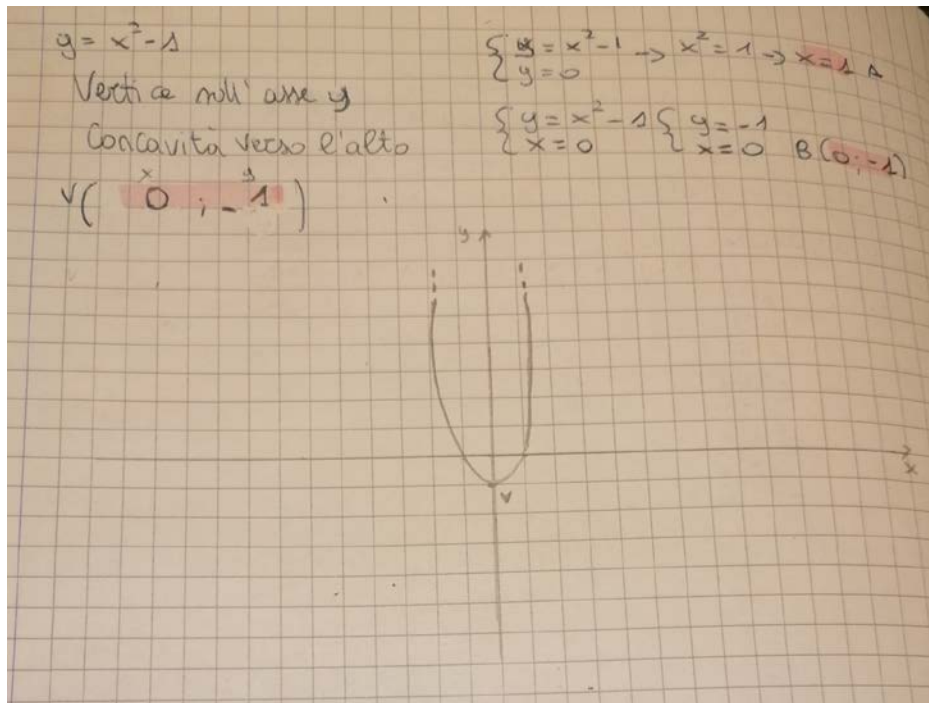 y = x² - 1
Vertice sull' asse y
Concavità verso l'alto
x y
V( 0 ; - 1 )
{ y = x² - 1 → x² = 1 → x = 1 A
{ y = 0
{ y = x² - 1 { y = -1
{ x = 0 { x = 0 B (0; -1)
y
x
V